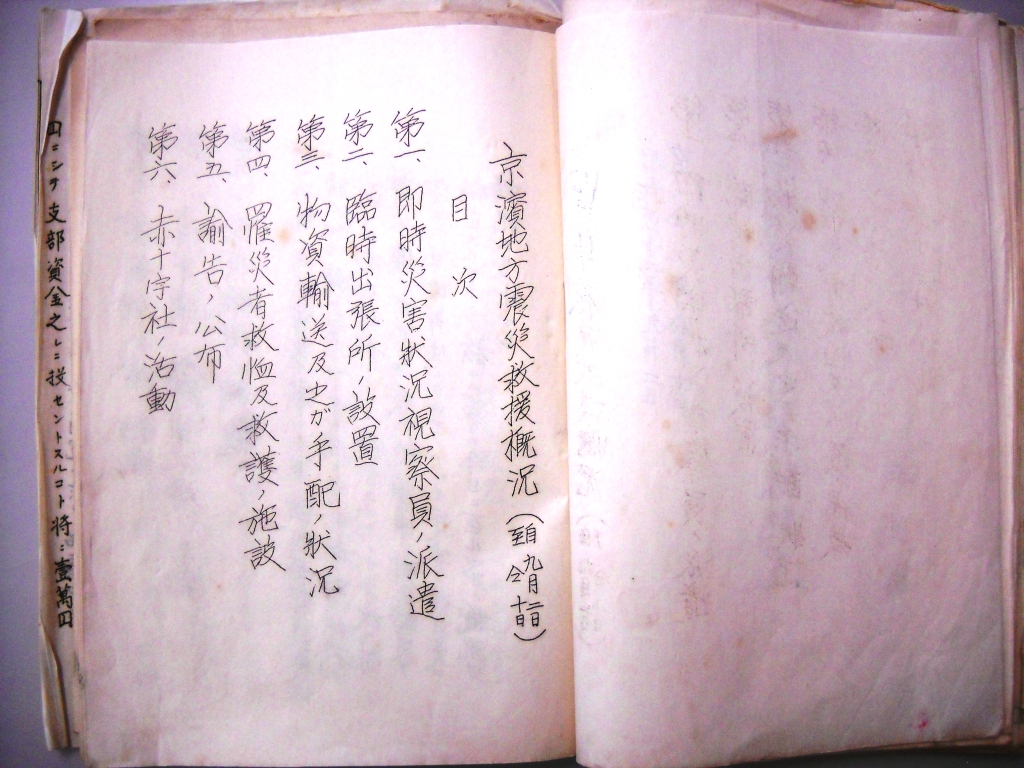 京濱地方震災救援概況(自九月二日至仝十日)
目次
第一、即時災害狀況視察員ノ派遣
第二、臨時出張所ノ設置
第三、物資輸送及之ガ手配ノ狀況
第四、罹災者救恤及救護ノ施設
第五、諭告ノ公布
第六、赤十字社ノ活動
シテ支部資金之レニ投セントスルコト將ニ壹萬円